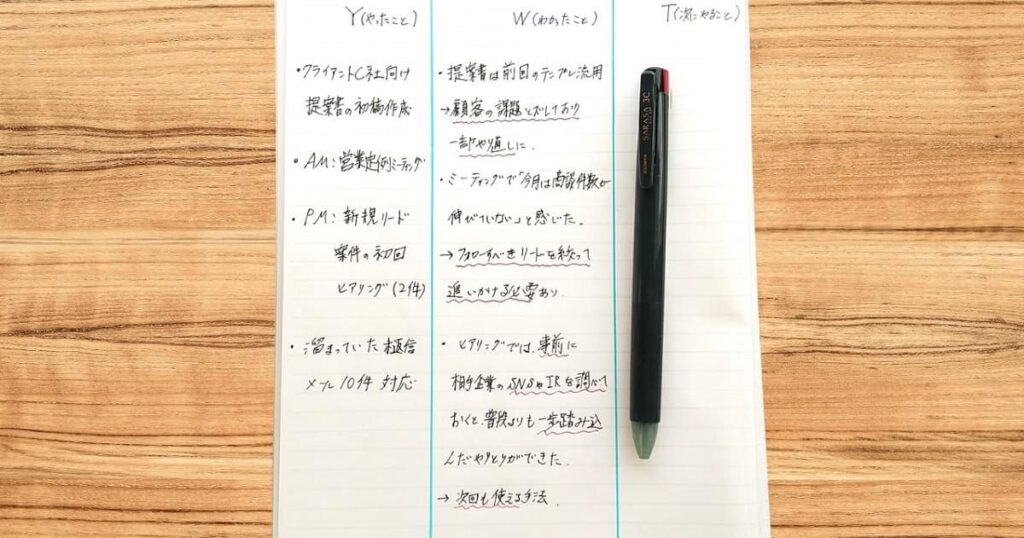 Y(やったこと)
・クライアントC社向け
提案書の初稿作成
・AM:営業定例ミーティング
・PM:新規リード
案件の初回
ヒアリング(2件)
・溜まっていた返信
メール10件対応
W(わかったこと)
・提案書は前回のテンプレ流用
→顧客の課題とズレており
一部やり直しに.
・ミーティングで「今月は商談件数が
伸びていない」と感じた.
→フォローすべきリードを絞って
追いかける必要あり.
・ヒアリングでは、事前に
相手企業のSNSやIRを調べて
おくと、普段よりも一歩踏み込
んだやりとりができた.
→次回も使える手法.
T(次にやること)
SARASA 3C